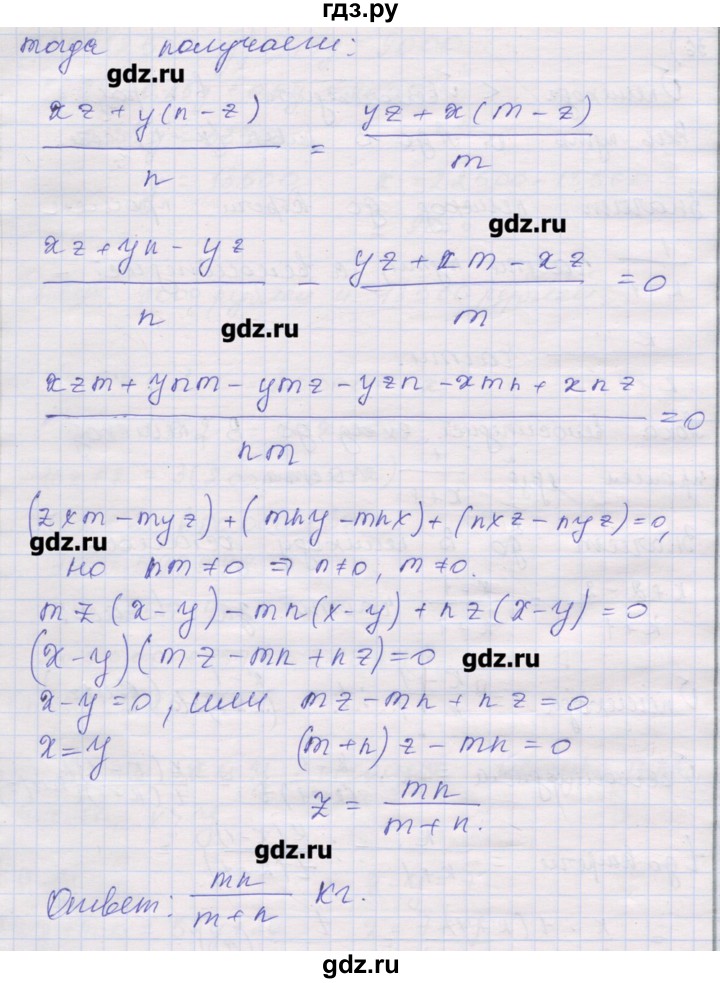 гдз.ру
тогда получаем:
gdz.ru
(xz + y(n - z))/n = (yz + x(m - z))/m
gdz.ru
(xz + yn - yz)/n - (yz + xm - xz)/m = 0
gdz.ru
(xzm + ynm - ymz - yzn - xmn + xnz)/nm = 0
(zxm - myz) + (mny - mnx) + (nxz - nyz) = 0,
gdz.ru
но nm ≠ 0 ⇒ n ≠ 0, m ≠ 0.
mz(x - y) - mn(x - y) + nz(x - y) = 0
(x - y)(mz - mn + nz) = 0
gdz.ru
x - y = 0, или mz - mn + nz = 0
x = y (m + n)z - mn = 0
z = mn/(m + n).
gdz.ru
Ответ: mn/(m + n) кг.
gdz.ru